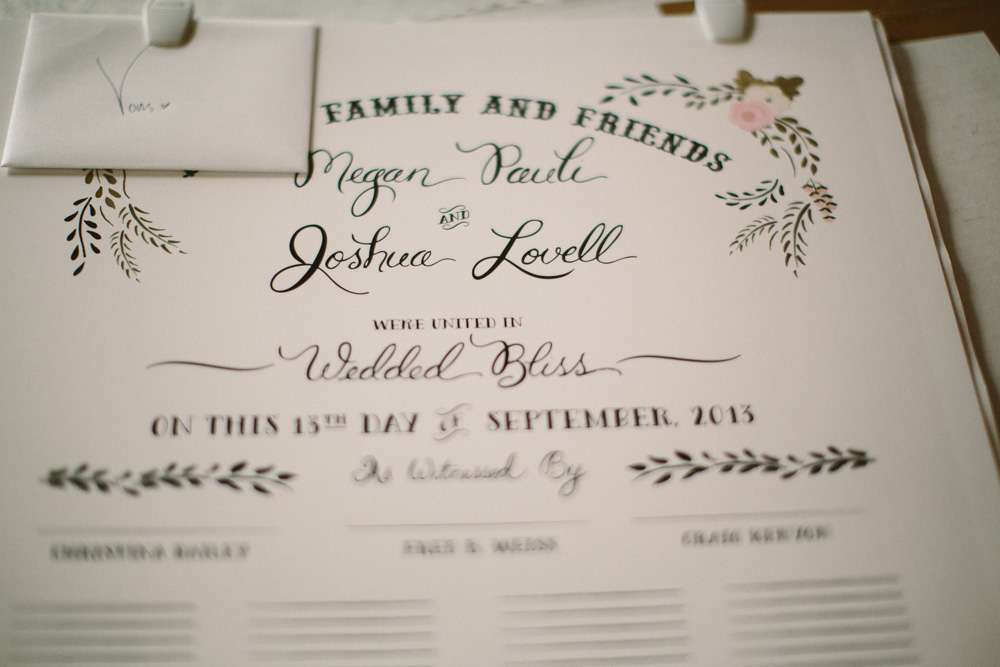 Vows
FAMILY AND FRIENDS
Megan Pauli
AND
Joshua Lovell
WERE UNITED IN
Wedded Bliss
ON THIS 13TH DAY of SEPTEMBER, 2013
As Witnessed By
CHRISTINA BAILEY
CRAIG KENYON